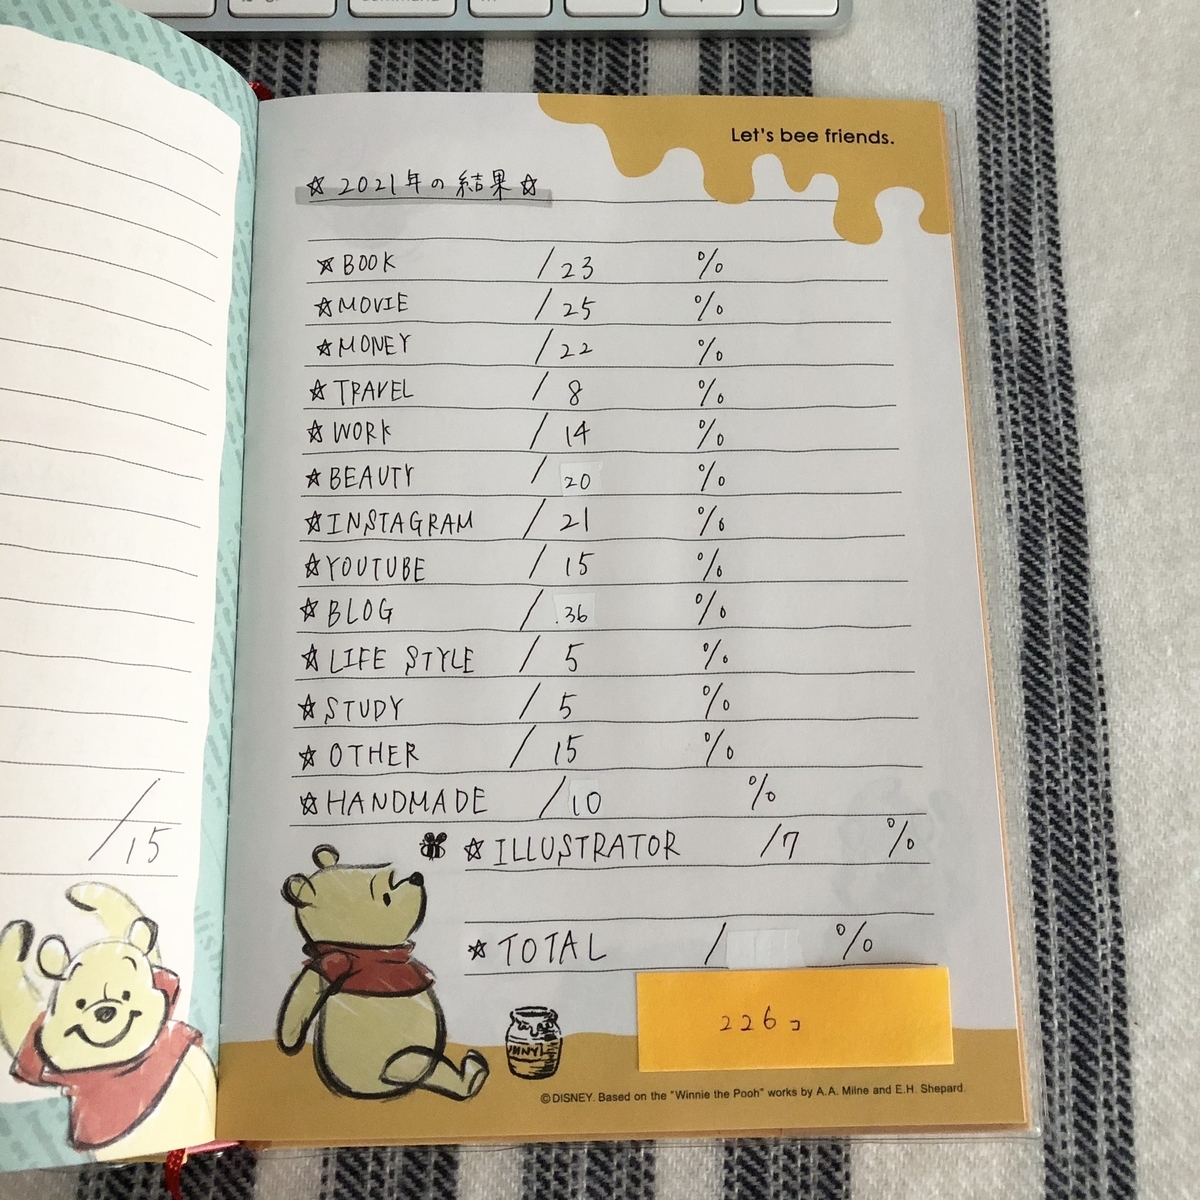 command
Let's bee friends.
☆ 2021年の結果 ☆
☆ BOOK / 23 %
☆ MOVIE / 25 %
☆ MONEY / 22 %
☆ TRAVEL / 8 %
☆ WORK / 14 %
☆ BEAUTY / 20 %
☆ INSTAGRAM / 21 %
☆ YOUTUBE / 15 %
☆ BLOG / 36 %
☆ LIFE STYLE / 5 %
☆ STUDY / 5 %
☆ OTHER / 15 %
☆ HANDMADE / 10 %
/15
☆ ILLUSTRATOR /7 %
☆ TOTAL / %
226コ
©DISNEY. Based on the "Winnie the Pooh" works by A.A. Milne and E.H. Shepard.